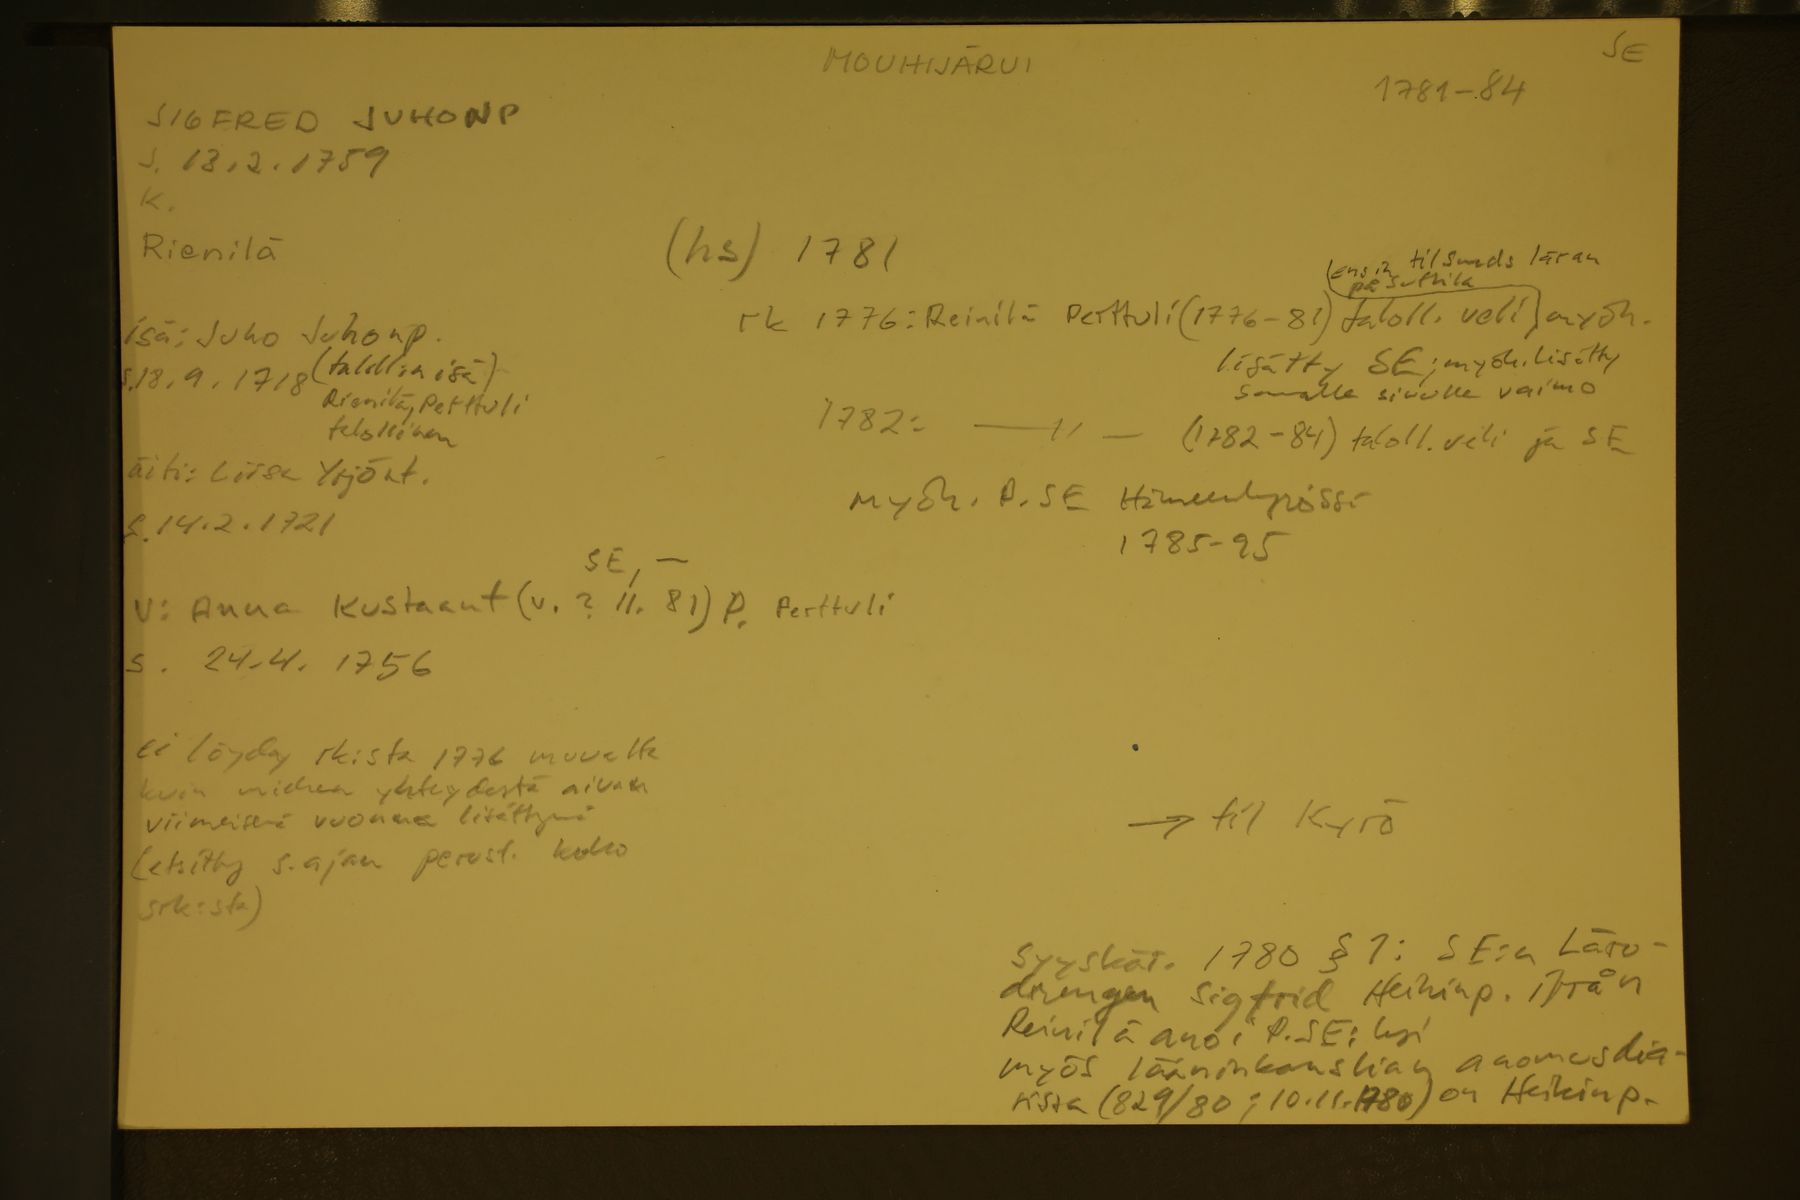 MOUHIJÄRVI
SE
1781-84
SIGFRED JUHONP
s. 13.2.1759
K.
Rienilä
(hs) 1781
(ensin tilsunds läran
på Suthila
rk 1776: Reinilä Perttuli (1776-81) taloll. veli) myöh.
lisätty SE; myöh. lisätty
samalle sivulle vaimo
isä: Juho Juhonp.
s. 18.9.1718 (taloll:n isä)
Rienilä, Perttuli
talollinen
1782: —〃— (1782-84) taloll. veli ja SE
äiti: Liisa Yrjönt.
s. 14.2.1721
myöh. P. SE Hämeenkyrössä
1785-95
SE, —
V: Anna Kustaant (v. ? 11. 81) P. Perttuli
s. 24.4.1756
ei löydy rk:sta 1776 muualta
kuin miehen yhteydestä aivan
viimeisenä vuonna lisättynä
(etsitty s.ajan perust. koko
srk:sta)
→ til Kyrö
Syyskär. 1780 § 7: SE:n Läro-
drengen Sigfrid Heikinp. ifrån
Reinilä anoi P.SE:ksi
myös lääninkanslian anomusdia-
rista (829/80; 10.11.1780) on Heikinp.